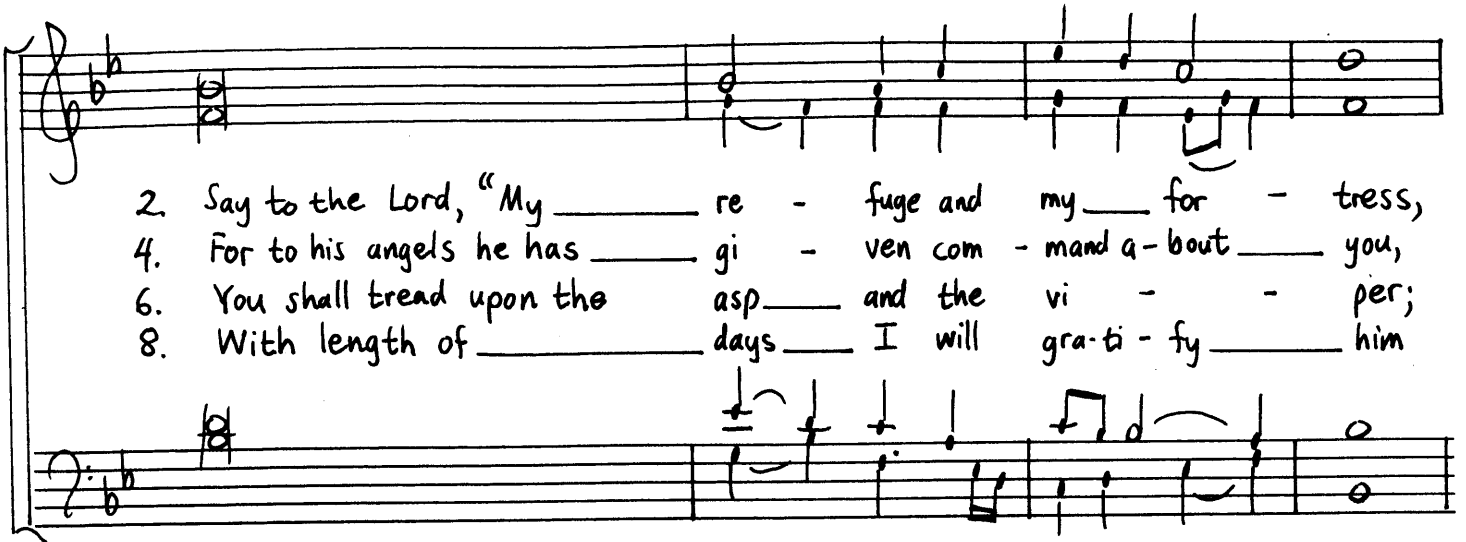 2. Say to the Lord, “My ______ re - fuge and my ___ for - tress,
4. For to his angels he has ______ gi - ven com - mand a - bout ____ you,
6. You shall tread upon the asp ____ and the vi - - per;
8. With length of ____________ days ___ I will gra - ti - fy ______ him